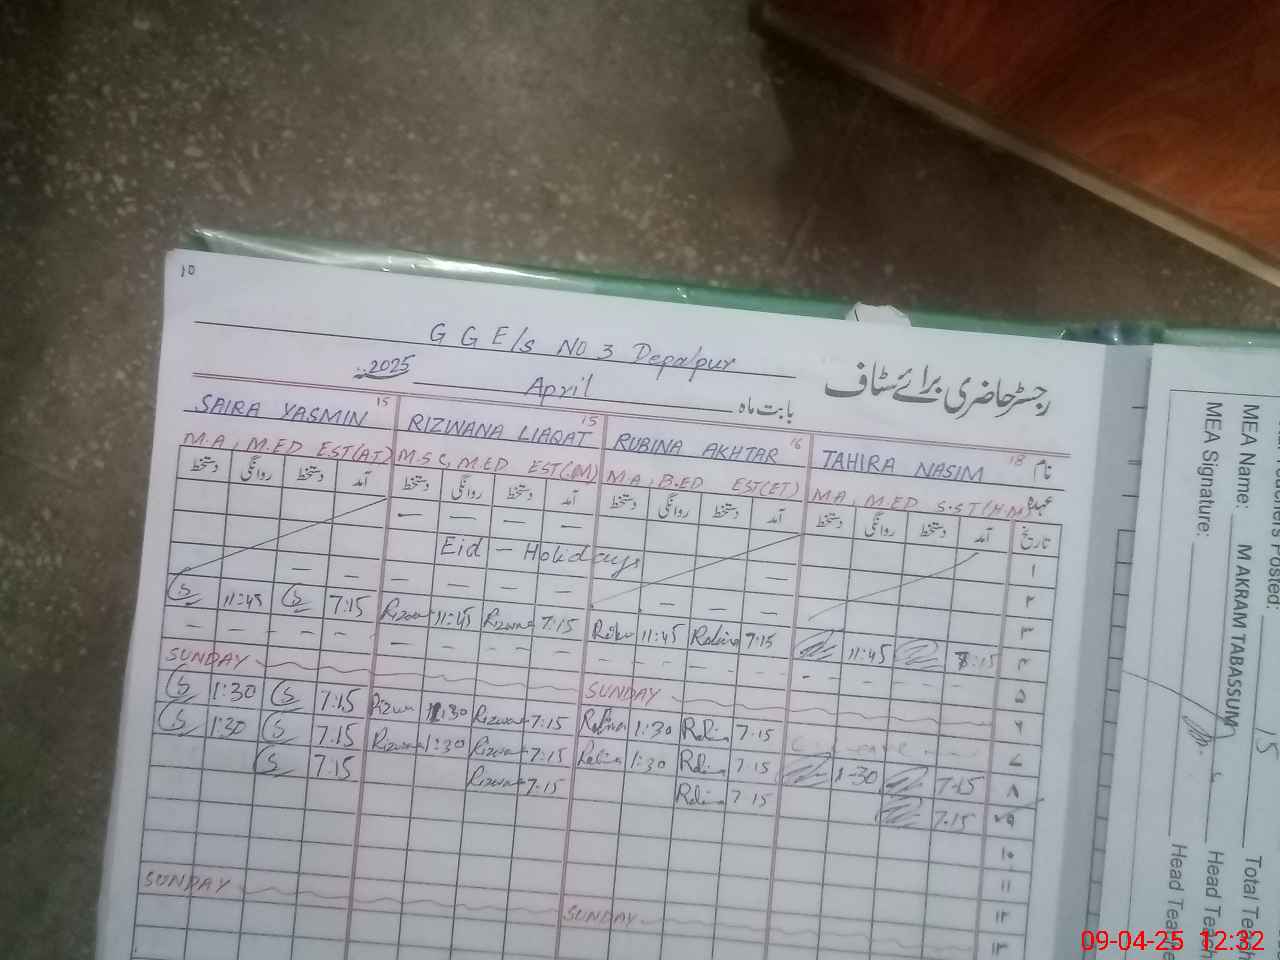 10
G G E/s NO 3 Depalpur
رجسٹر حاضری برائے سٹاف
بابت ماہ April 2025
نام TAHIRA NASIM 18 RUBINA AKHTAR 16 RIZWANA LIAQAT 15 SAIRA YASMIN 15
عہدہ M.A, M.ED S.ST(H.M) M.A, B.ED EST(ET) M.SC, M.ED EST(SM) M.A, M.ED EST(AI)
تاریخ آمد دستخط روانگی دستخط آمد دستخط روانگی دستخط آمد دستخط روانگی دستخط آمد دستخط روانگی دستخط
۱
Eid - Holidays
۲
۳
۴ 7:15 11:45 7:15 Rubina 11:45 7:15 Rizwana 11:45 7:15 11:45
۵
۶ SUNDAY SUNDAY
۷ 7:15 Rubina 1:30 7:15 Rizwana 1:30 7:15 1:30
۸ 7:15 1:30 7:15 Rubina 1:30 7:15 Rizwana 1:30 7:15 1:30
۹ 7:15 7:15 Rubina 7:15 Rizwana 7:15
۱۰
۱۱
۱۲
۱۳ SUNDAY SUNDAY
MEA Name: MAKRAM TABASSUM
MEA Signature:
Teachers Posted: 15
Total Teach
Head Teach
Head Teac
09-04-25 12:32